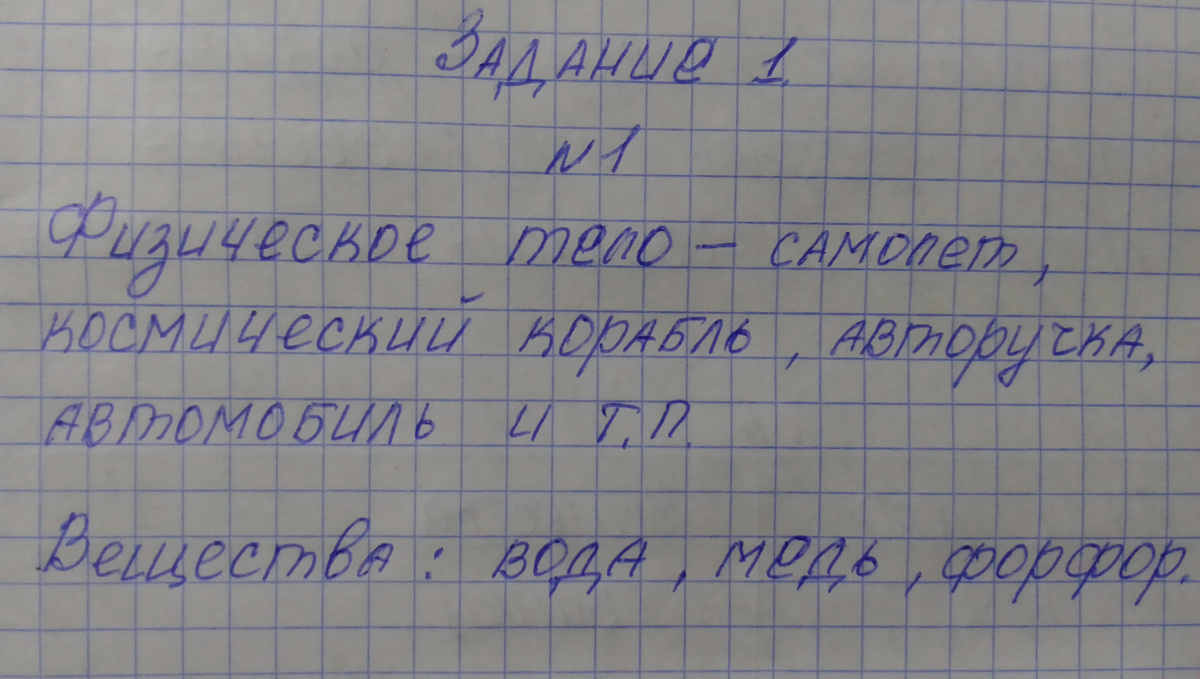 Задание 1.
N1
Физическое тело - самолет,
космический корабль, авторучка,
автомобиль и т.п.
Вещества: вода, медь, форфор.